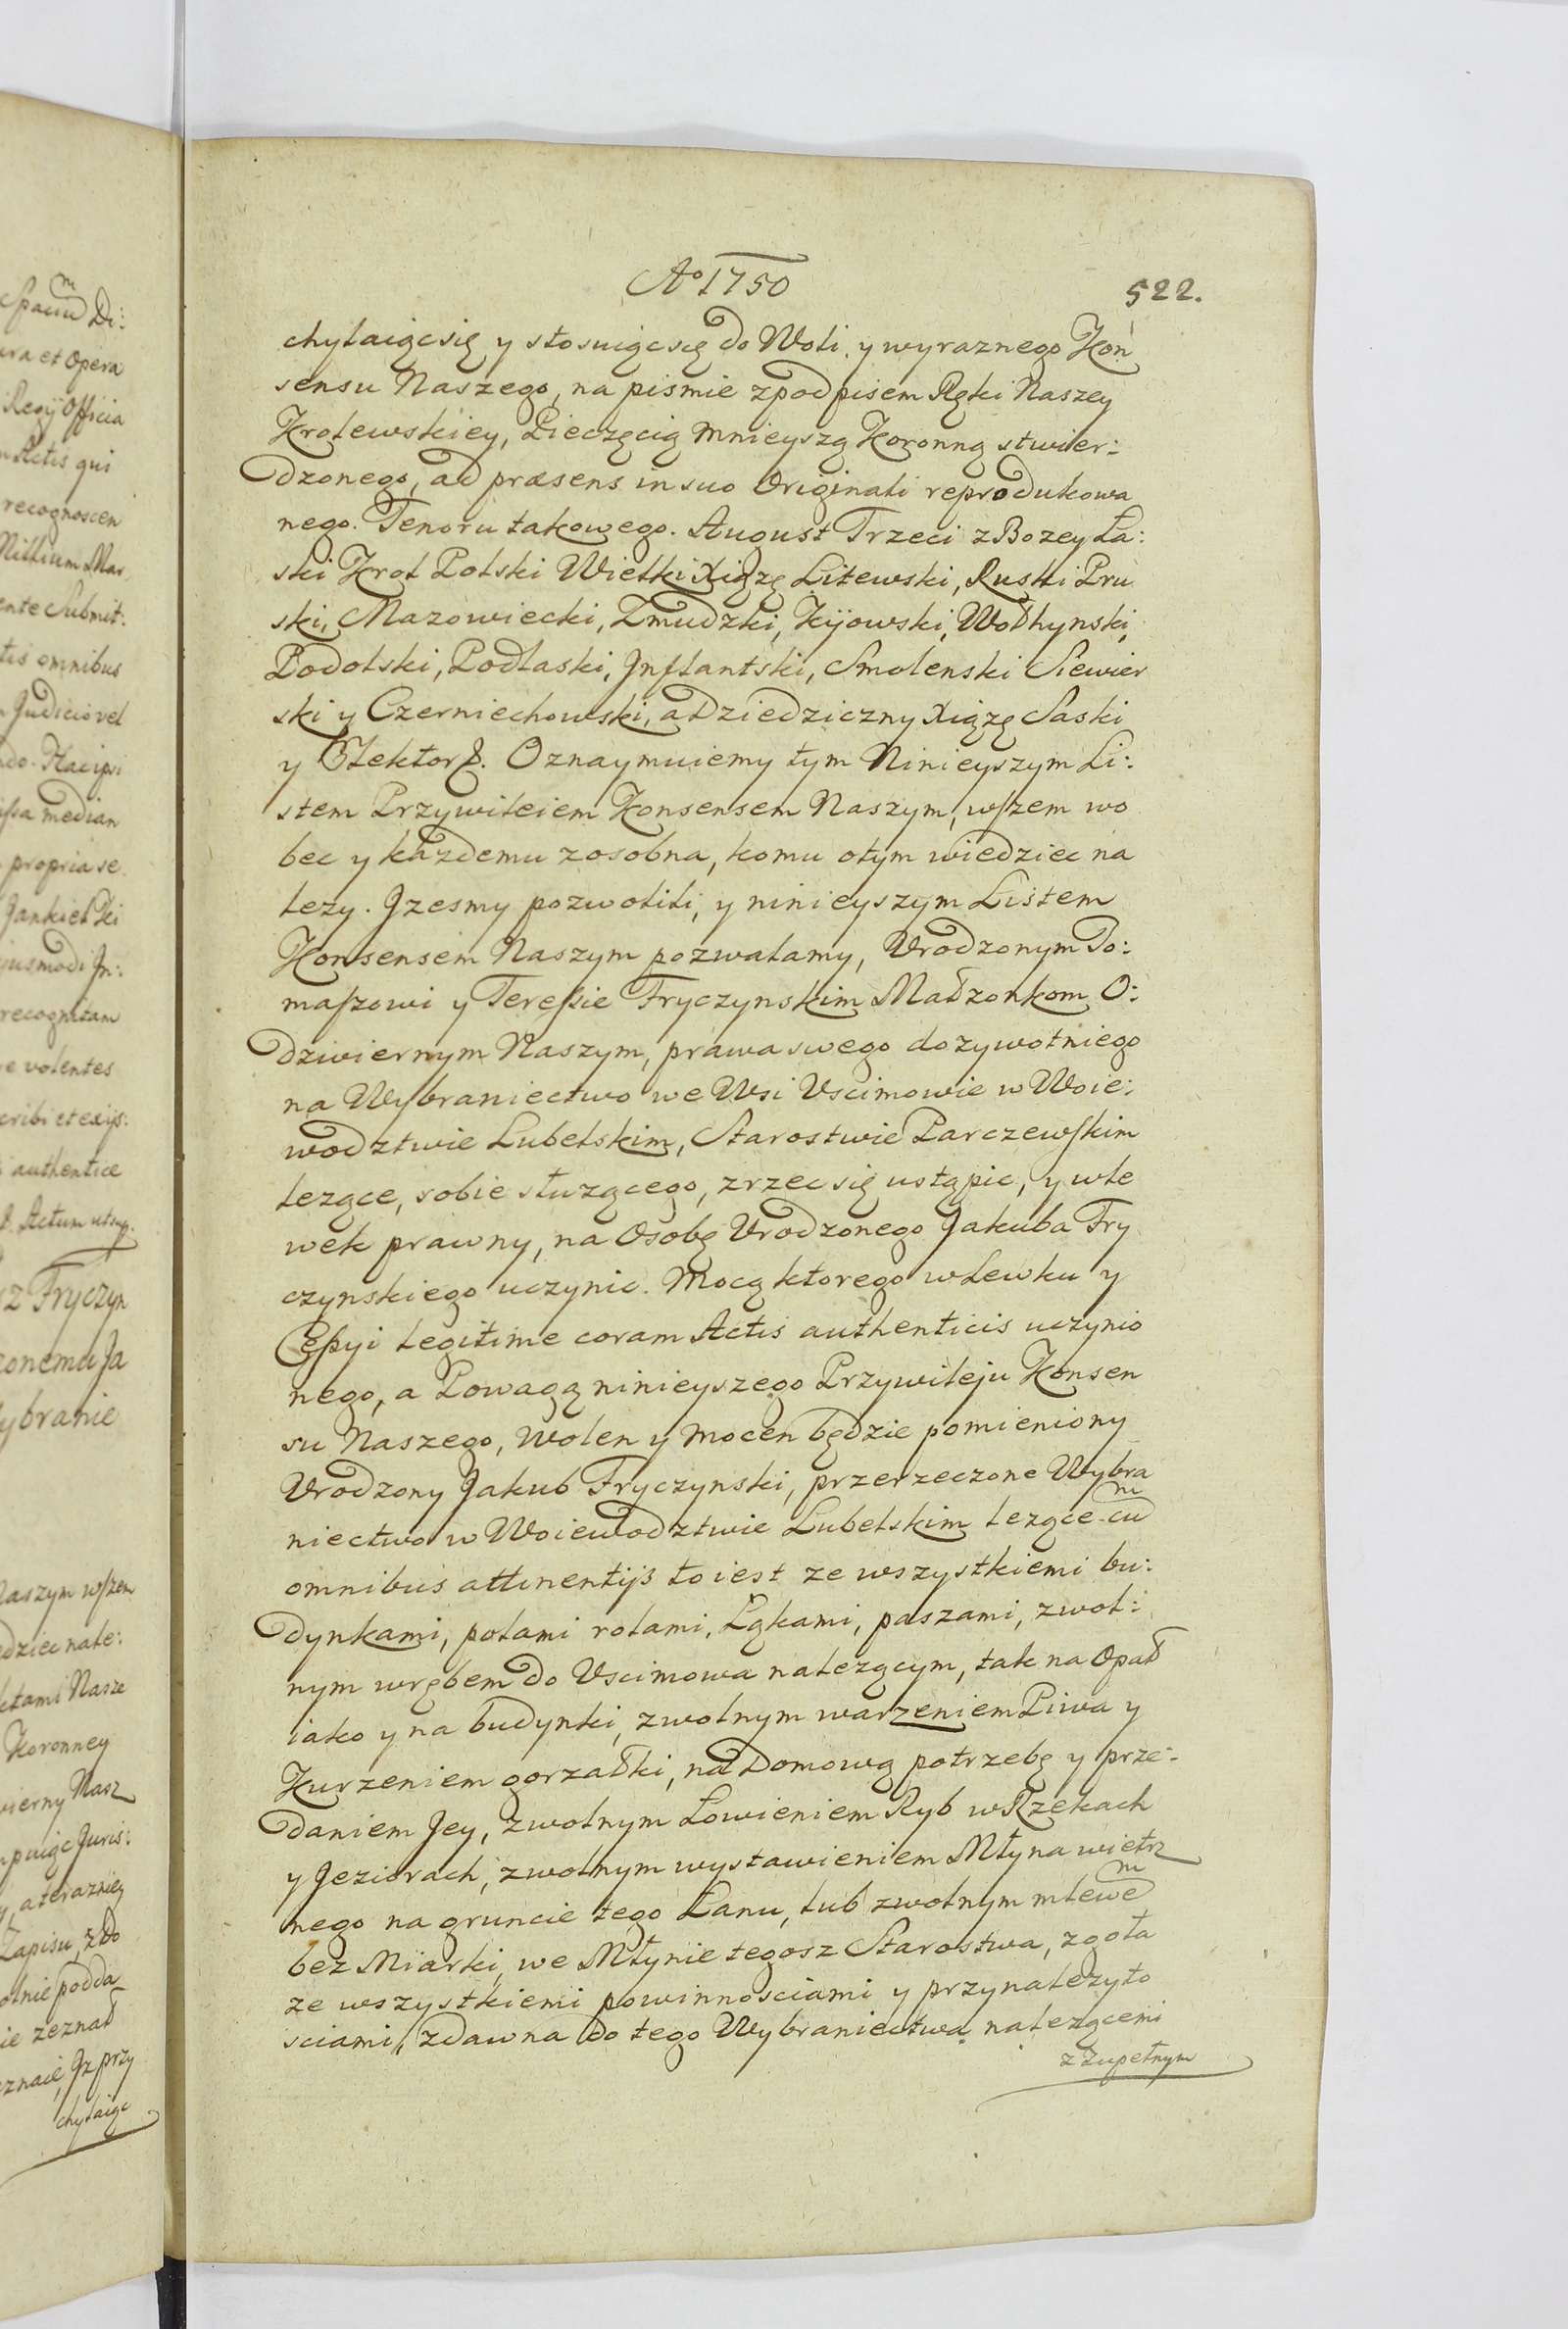 Spaum Di:
ura et Opera
Regÿ Officia
Actis qui
recognoscen
Nittium Mar
ente Submit:
tis omnibus
Judicio vel
do. Hac ipsi
ipsa median
propria se
Jankiel Ki
jusmodi Jn:
recognitam
e volentes
cribi et exijs:
authentice
Actum utsup.
sz Fryczyn
zonemu Ja
ybranie
Naszym wszem
dziec nale:
ktami Nasze
Koronney
wierny Nasz
puiąc Juris:
a terazniey
Zapisu, z Do
olnie podda
ie zeznał
eznaie, Jz przy
chylaiąc
Ao 1750
522.
chylaiącsię y stosuiącsię do Woli y wyraznego Kon
sensu Naszego, na pismie zpodpisem Ręki Naszey
Krolewskiey, Pieczęcią Mnieyszą Koronną stwier:
dzonego, ad præsens in suo Originali reprodukowa
nego. Tenoru takowego. August Trzeci z Bozey Ła:
ski Krol Polski Wielki Xiążę Litewski, Ruski Pru
ski, Mazowiecki, Zmudzki, Kijowski, Wołhynski,
Podolski, Podlaski, Jnflantski, Smolenski Siewier
ski y Czerniechowski, a Dziedziczny Xiążę Saski
y Elektor &. Oznaymuiemy tym Ninieyszym Li:
stem Przywileiem Konsensem Naszym, wszem wo
bec y kazdemu zosobna, komu otym wiedziec na
lezy. Jzesmy pozwolili, y ninieyszym Listem
Konsensem Naszym pozwalamy, Urodzonym To:
maszowi y Teressie Fryczynskim Małzonkom O:
dziwiernym Naszym, prawa swego dozywotniego
na Wybraniectwo we Wsi Uscimowie w Woie:
wodztwie Lubelskim, Starostwie Parczewskim
lezące, sobie słuzącego, zrzec się ustąpic, y wle
wek prawny, na Osobę Urodzonego Jakuba Fry
czynskiego uczynic. Mocą ktorego wlewku y
Cessyi legitime coram Actis authenticis uczynio
nego, a Powagą ninieyszego Przywileju Konsen
su Naszego, Wolen y mocen będzie pomieniony
Urodzony Jakub Fryczynski, przerzeczone Wybra
niectwo w Woiewodztwie Lubelskim lezące cum
omnibus attinentijs toiest ze wszystkiemi bu:
dynkami, polami rolami, Łąkami, paszami, zwol:
nym wrębem do Uscimowa nalezącym, tak na Opał
iako y na budynki, zwolnym warzeniem Piwa y
Kurzeniem gorzałki, na Domową potrzebę y prze:
daniem Jey, zwolnym Łowieniem Ryb w Rzekach
y Jeziorach, zwolnym wystawieniem Młyna wietrz
nego na gruncie tego Łanu, lub zwolnym mlewem
bez Miarki, we Młynie tegosz Starostwa, zgoła
ze wszystkiemi powinnosciami y przynalezyto
sciami, zdawna do tego Wybraniectwa nalezącemi
z Zupełnym